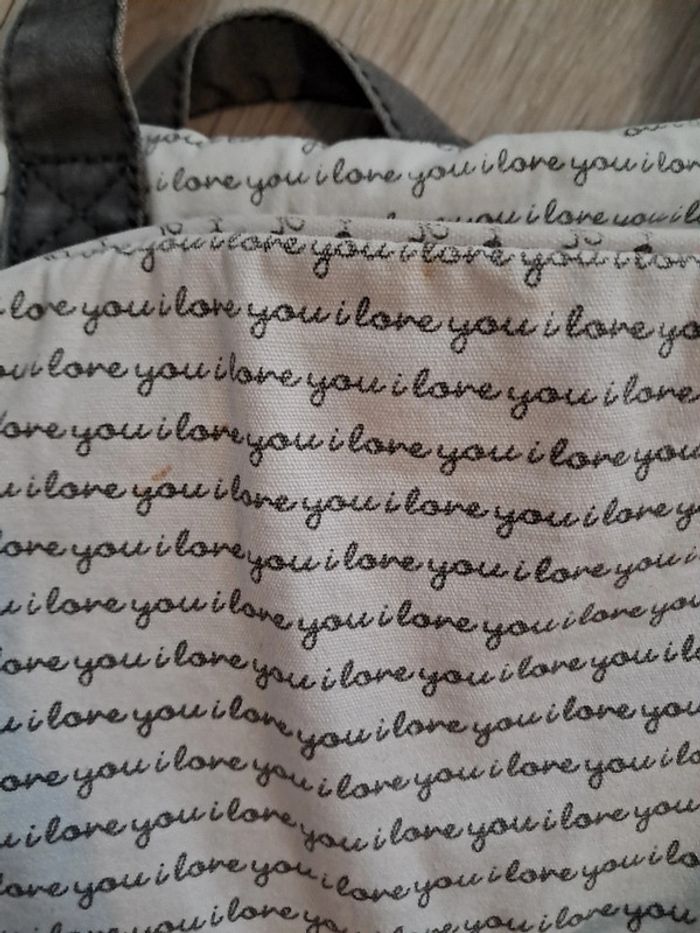 i love you i love you i love
you i love you i l
i love you i love you i love
i love you i love you i love you i love yo
i love you i love you i love you i love
love you i love you i love you i love you
i love you i love you i love you i love y
love you i love you i love you i love you i
i love you i love you i love you i love you
love you i love you i love you i love you i l
i love you i love you i love you i love you
love you i love you i love you i love you i lo
i love you i love you i love you i love you
love you i love you i love you i love you i lo
you i love you i love you i love you